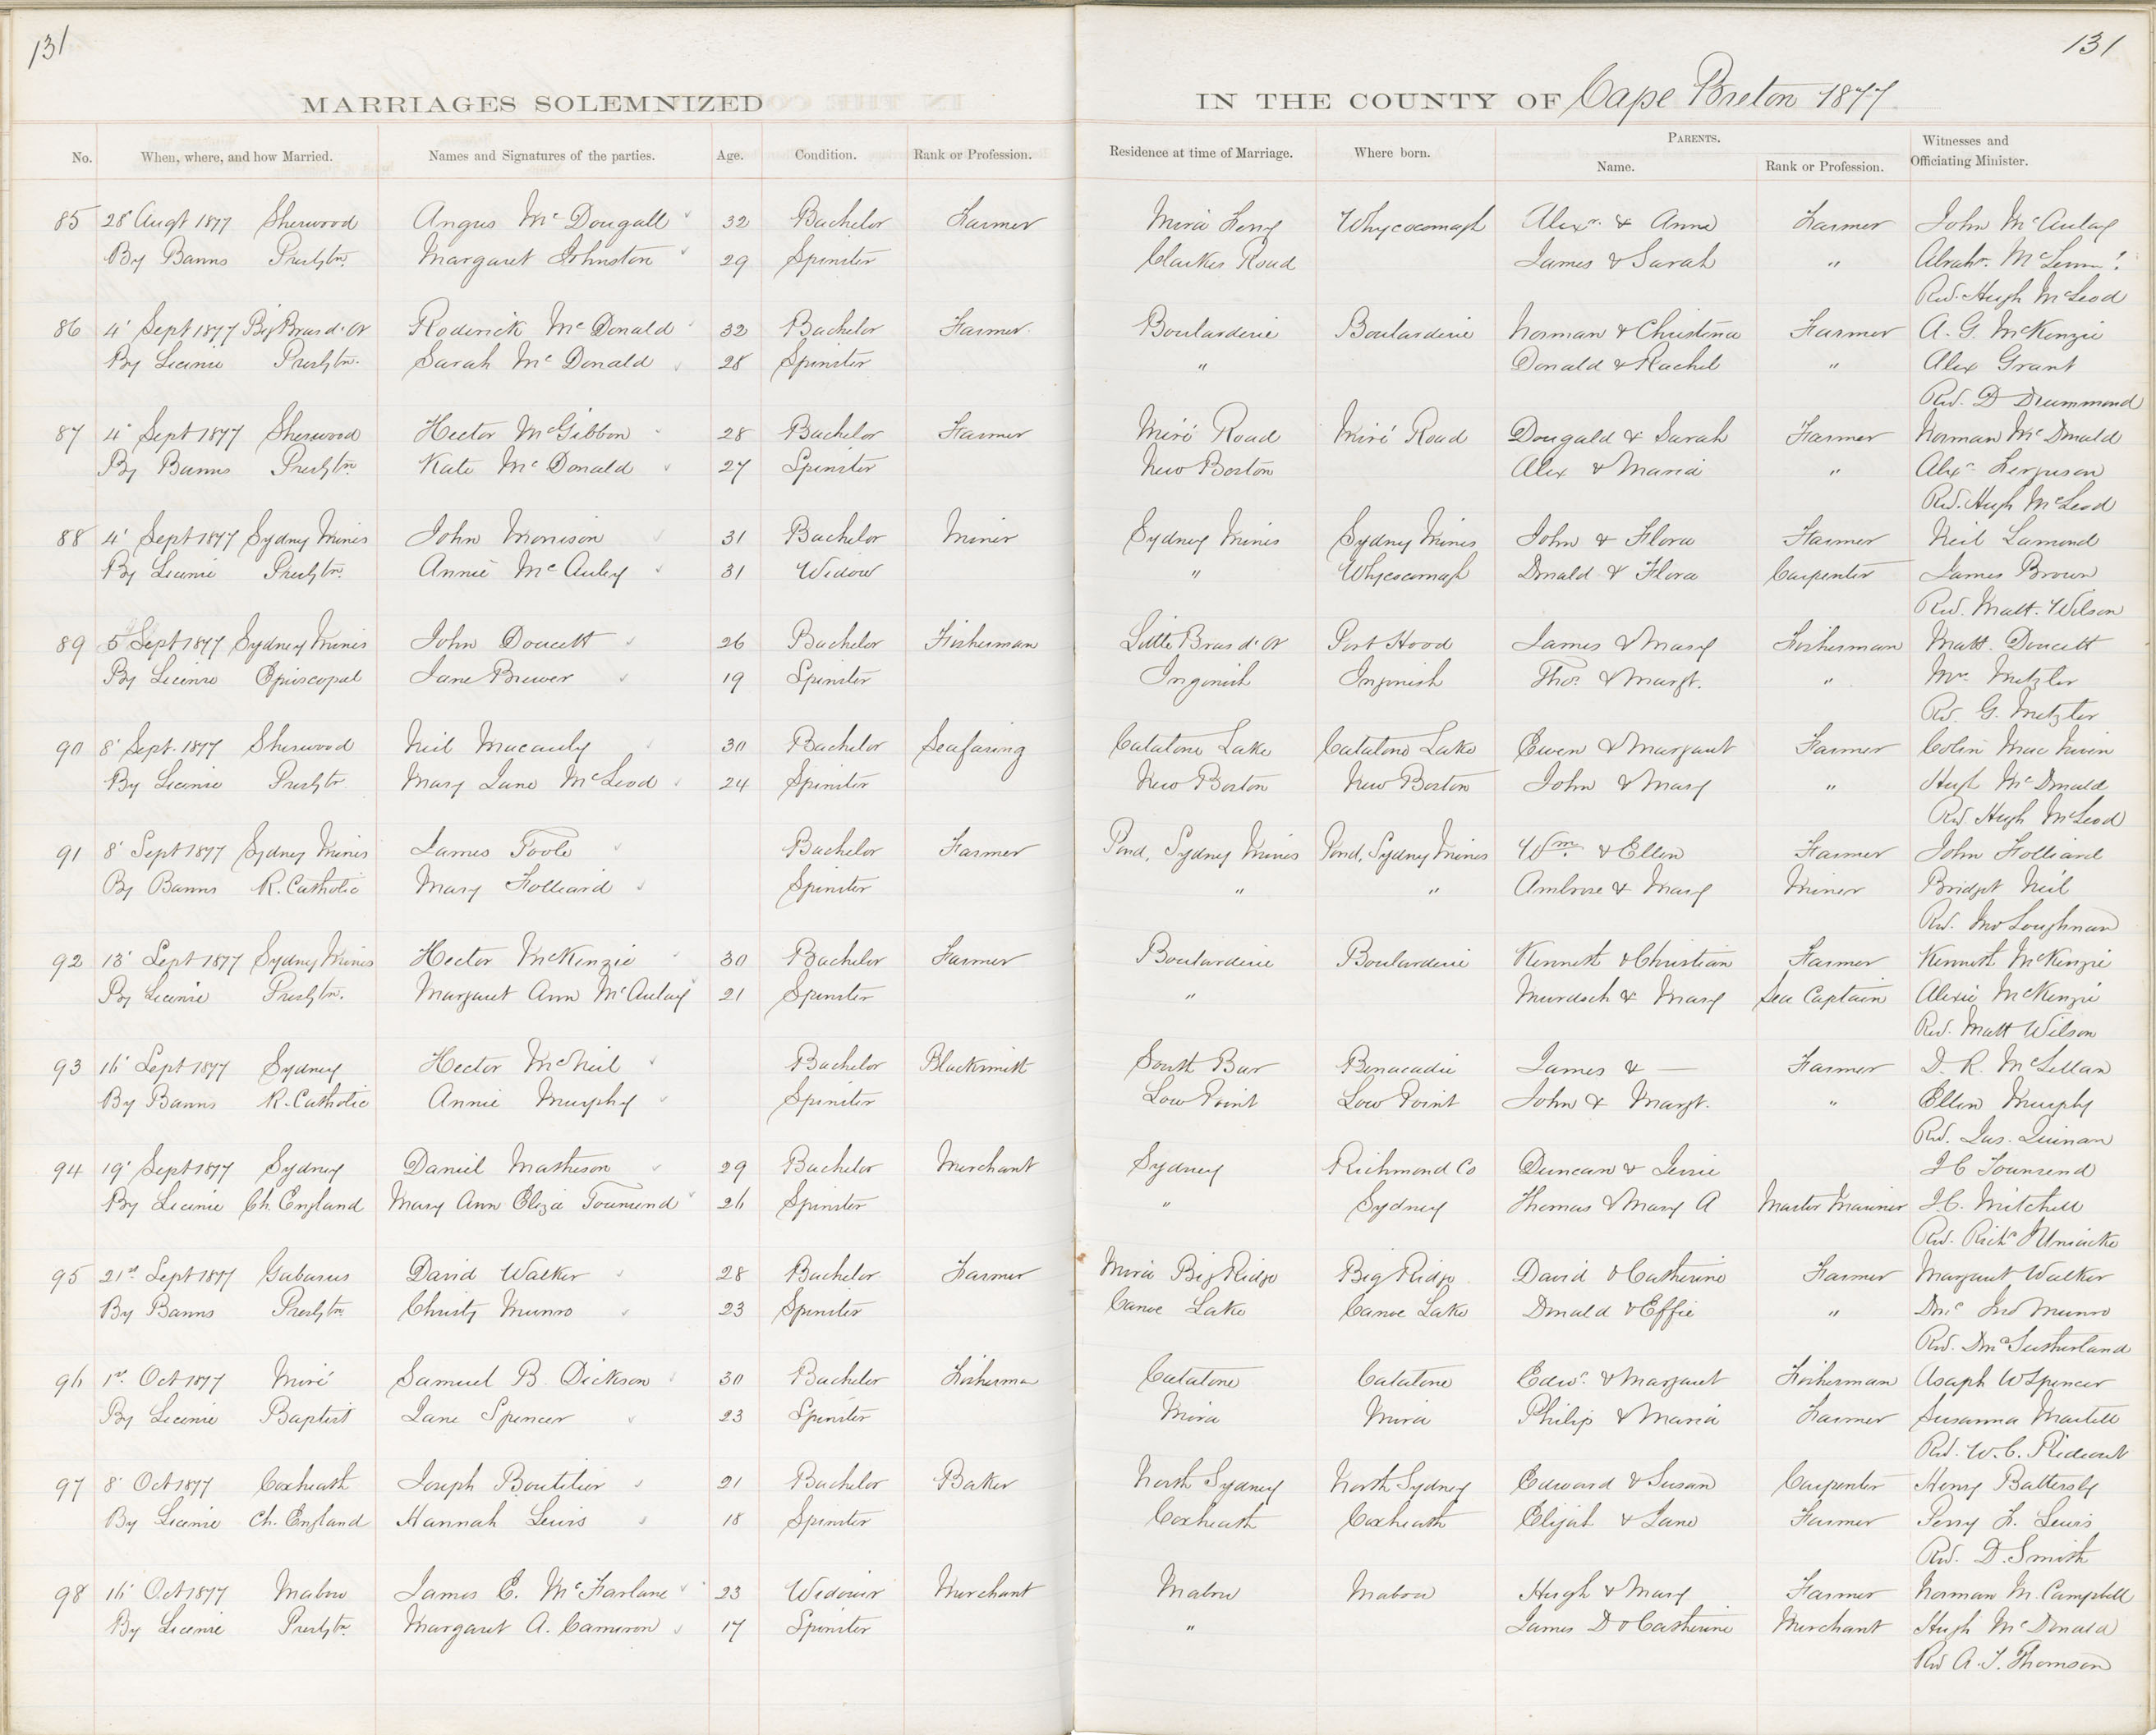 131
131
MARRIAGES SOLEMNIZED IN THE COUNTY OF Cape Breton 1877
No. When, where, and how Married. Names and Signatures of the parties. Age. Condition. Rank or Profession. Residence at time of Marriage. Where born. PARENTS. Name. Rank or Profession. Witnesses and Officiating Minister.
85 28' Augt 1877 Sherwood Angus Mc Dougall 32 Bachelor Farmer Mira Ferry Whycocomagh Alexr. & Anna Farmer John McAulay
By Banns Presbtn. Margaret Johnston 29 Spinster Clarkes Road James & Sarah "
Rev. Hugh McLeod
86 4' Sept 1877 Big Bras d'Or Roderick Mc Donald 32 Bachelor Farmer Boularderie Boularderie Norman & Christina Farmer A. G. McKenzie
By License Presbtn. Sarah Mc Donald 28 Spinster " Donald & Rachel " Alex Grant
Rev. D Drummond
87 4' Sept 1877 Sherwood Hector McGibbon 28 Bachelor Farmer Miré Road Miré Road Dougald & Sarah Farmer Norman Mc Donald
By Banns Presbtn Kate Mc Donald 27 Spinster New Boston Alex & Maria " Alexr Ferguson
Rev. Hugh McLeod
88 4' Sept 1877 Sydney Mines John Morrison 31 Bachelor Miner Sydney Mines Sydney Mines John & Flora Farmer Neil Lamond
By License Presbtn. Annie Mc Auley 31 Widow " Whycocomagh Donald & Flora Carpenter James Brown
Rev. Matt. Wilson
89 5 Sept 1877 Sydney Mines John Doucett 26 Bachelor Fisherman Little Bras d'Or Port Hood James & Mary Fisherman Matt. Doucett
By License Episcopal Jane Brewer 19 Spinster Ingonish Ingonish Thos. & Margt. " Mrs. Metzler
Rev. G. Metzler
90 8' Sept. 1877 Sherwood Neil Macauly 30 Bachelor Seafaring Catalone Lake Catalone Lake Ewen & Margaret Farmer Colin Mac Niven
By License Presbtr. Mary Jane McLeod 24 Spinster New Boston New Boston John & Mary " Hugh Mc Donald
Rev Hugh McLeod
91 8' Sept 1877 Sydney Mines James Toole Bachelor Farmer Pond, Sydney Mines Pond, Sydney Mines Wm. & Ellen Farmer John Folliard
By Banns R. Catholic Mary Folliard Spinster " " Ambrose & Mary Miner Bridget Neil
Rev. Loughnan
92 13' Sept 1877 Sydney Mines Hector McKenzie 30 Bachelor Farmer Boularderie Boularderie Kenneth & Christian Farmer Kenneth McKenzie
By License Presbtn. Margaret Ann McAulay 21 Spinster " Murdoch & Mary Sea Captain Alexie McKenzie
Rev. Matt Wilson
93 16' Sept 1877 Sydney Hector McNeil Bachelor Blacksmith South Bar Benacadie James & — Farmer D. R. McLellan
By Banns R. Catholic Annie Murphy Spinster Low Point Low Point John & Margt. " Ellen Murphy
Rev. Jas. Quinan
94 19' Sept 1877 Sydney Daniel Matheson 29 Bachelor Merchant Sydney Richmond Co Duncan & Jessie Townsend
By License Ch. England Mary Ann Eliza Townsend 26 Spinster " Sydney Thomas & Mary A Master Mariner Mitchell
Rev. Richd J Uniacke
95 21st Sept 1877 Gabarus David Walker 28 Bachelor Farmer Mira Big Ridge Big Ridge David & Catherine Farmer Margaret Walker
By Banns Presbtn. Christy Munro 23 Spinster Canoe Lake Canoe Lake Donald & Effie " Jno Munro
Rev. Sutherland
96 1st. Oct 1877 Miré Samuel B. Dickson 30 Bachelor Fisherman Catalone Catalone Edwd. & Margaret Fisherman Asaph W Spencer
By License Baptist Jane Spencer 23 Spinster Mira Mira Philip & Maria Farmer Susanna Martell
Rev. W. C. Rideout
97 8' Oct 1877 Coxheath Joseph Boutilier 21 Bachelor Baker North Sydney North Sydney Edward & Susan Carpenter Henry Battersby
By License Ch. England Hannah Lewis 18 Spinster Coxheath Coxheath Elijah & Jane Farmer Perry F. Lewis
Rev. D. Smith
98 16' Oct 1877 Mabou James C. McFarlane 23 Widower Merchant Mabou Mabou Hugh & Mary Farmer Norman M. Campbell
By License Presbtn Margaret A. Cameron 17 Spinster " James D & Catherine Merchant Hugh Mc Donald
Rev A. F. Thomson